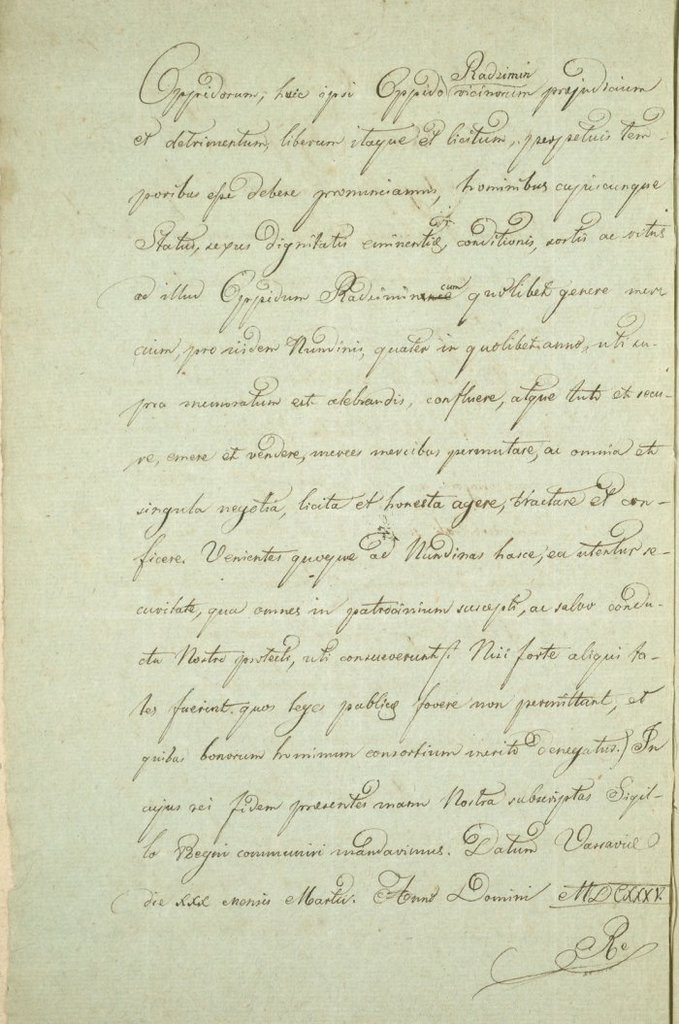 Oppidorum, huic ipsi Oppido Radzimin vicinorum præjudicium
et detrimentum, liberum itaque et licitum, perpetuis tem-
poribus esse debere pronunciamus, hominibus cujuscunque
Status, sexus dignitatis eminentiæ, conditionis, sortis ac ritus
ad illud Oppidum Radzimin cum quolibet genere mer-
cium, pro iisdem Nundinis, quater in quolibet anno, uti su-
pra memoratum est celebrandis, confluere, atque tuto et secu-
re, emere et vendere, merces mercibus permutare, ac omnia et
singula negotia, licita et honesta agere, tractare et con-
ficere. Venientes quoque ad Nundinas hasce, ea utentur se-
curitate, qua omnes in patrocinium suscepti, ac salvo condu-
ctu Nostro protecti, uti consueverunt (: Nisi forte aliqui ta-
les fuerint quos leges publicæ fovere non permittant, et
quibus bonorum hominum consortium merito denegatur.) In
cujus rei fidem præsentes manu Nostra subscriptas Sigil-
lo Regni communiri mandavimus. Datum Varsaviæ
die XXX mensis Martii. Anno Domini MDCXXXV.